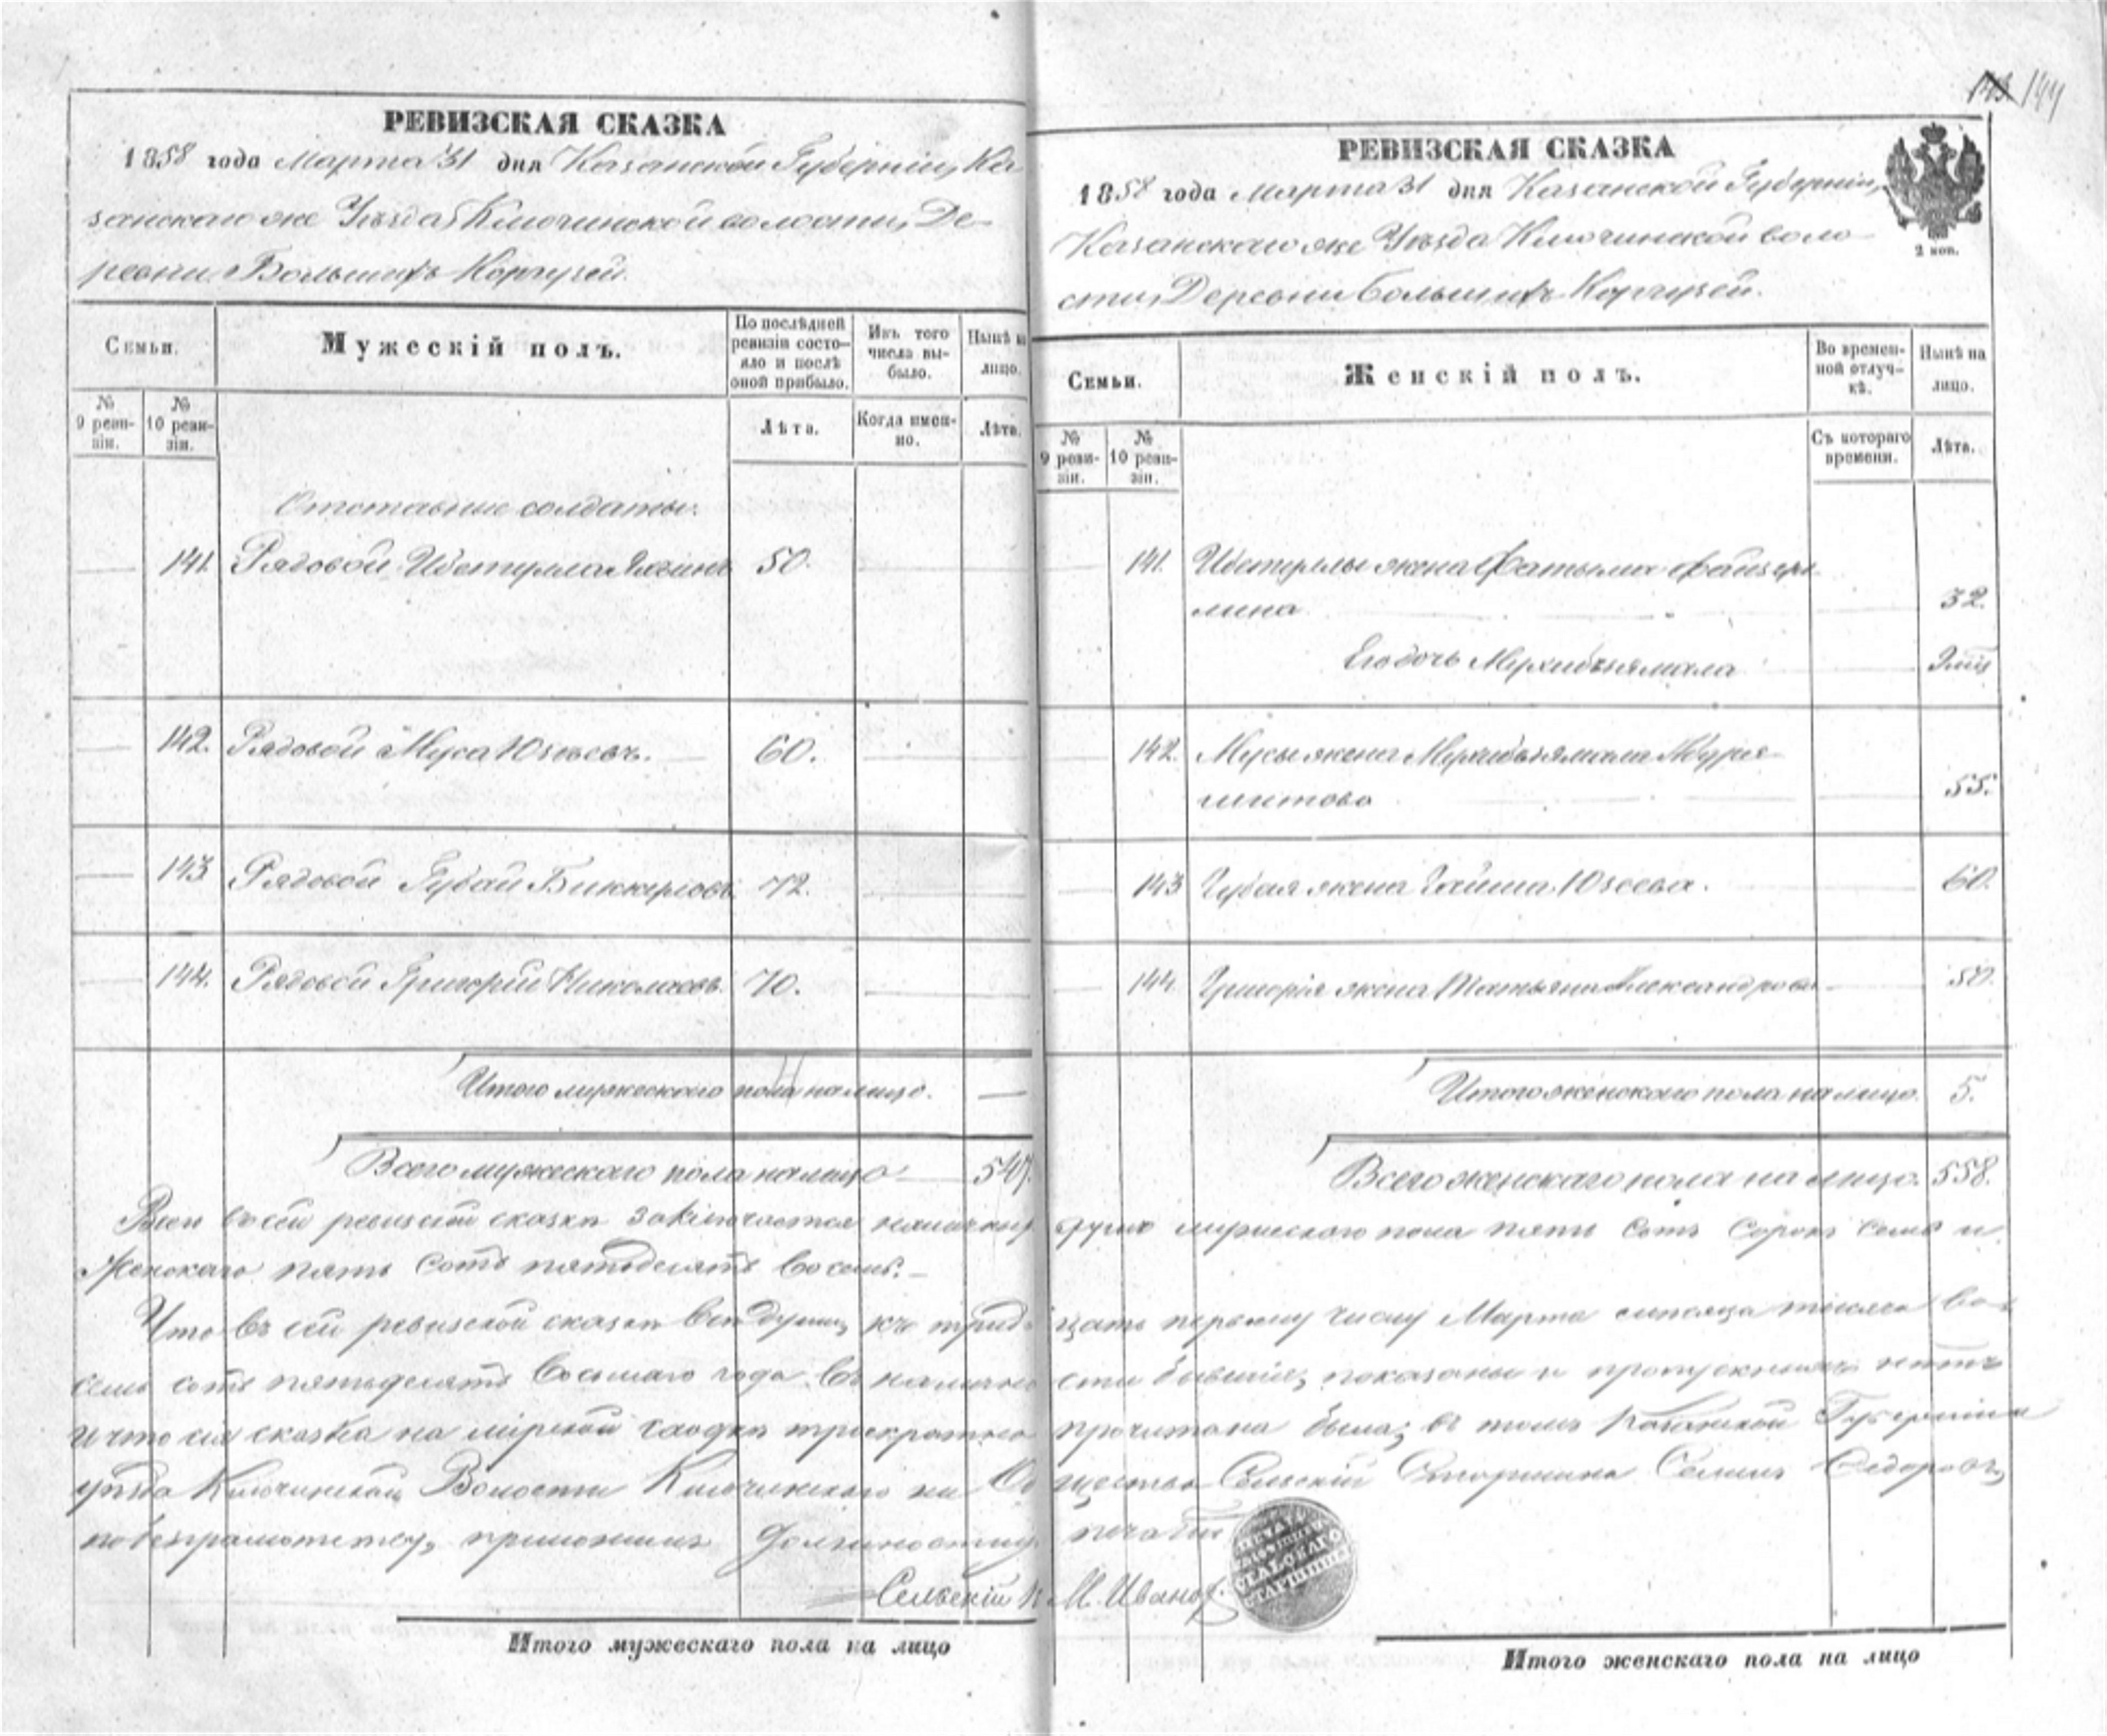 143 144
РЕВИЗСКАЯ СКАЗКА
1858 года Марта 31 дня Казанской Губерніи, Ка
занскаго же Уѣзда, Ключинской волости, Де-
ревни Большихъ
Семьи.
Мужескій полъ.
По послѣдней ревизіи состо-
яло и послѣ оной прибыло.
Изъ того числа вы-
было.
Нынѣ на лицо.
№ 9 реви-
зіи.
№ 10 реви-
зіи.
Лѣта.
Когда имен-
но.
Лѣта.
Отставные солдаты.
141. Рядовой 50.
142. Рядовой Муса Юзеевъ. 60.
143 Рядовой Губай 72.
144. Рядовой Григорій Николаевъ. 70.
Итого мужескаго пола на лицо. —
Всего мужескаго пола на лицо 547.
РЕВИЗСКАЯ СКАЗКА
1858 года Марта 31 дня Казанской Губерніи,
Казанскаго же Уѣзда Ключинской воло-
сти, Деревни Большихъ
2 коп.
Семьи.
Женскій полъ.
Во времен-
ной отлуч-
кѣ.
Нынѣ на лицо.
№ 9 реви-
зіи.
№ 10 реви-
зіи.
Съ котораго времени.
Лѣта.
141. жена Фатыма
32.
Его дочь
142. Мусы жена
55.
143 Губая жена Гайша Юзеева. 60.
144 Григорія жена Татьяна Александрова 50.
Итого женскаго пола на лицо. 5.
Всего женскаго пола на лицо. 558.
Всего въ сей ревизской сказкѣ заключается мужескаго пола пять сотъ сорокъ семь и
женскаго пять сотъ пятьдесятъ восемь.—
Что въ сей ревизской сказкѣ всѣ души, къ тридцать первому числу Марта мѣсяца тысяча во-
семь сотъ пятьдесятъ восьмаго года въ наличности бывшіе, показаны и пропускныхъ нѣтъ
и что сія сказка на мірской сходкѣ троекратно прочитана была; въ томъ Казанской Губерніи и
уѣзда Ключинской Волости Ключинскаго Общества Сельскій Старшина Федоровъ,
по безграмотству, приложилъ должностную печать
Сельскій П. М. Иванов
СЕЛЬСКАГО
СТАРШИНЫ
Итого мужескаго пола на лицо
Итого женскаго пола на лицо